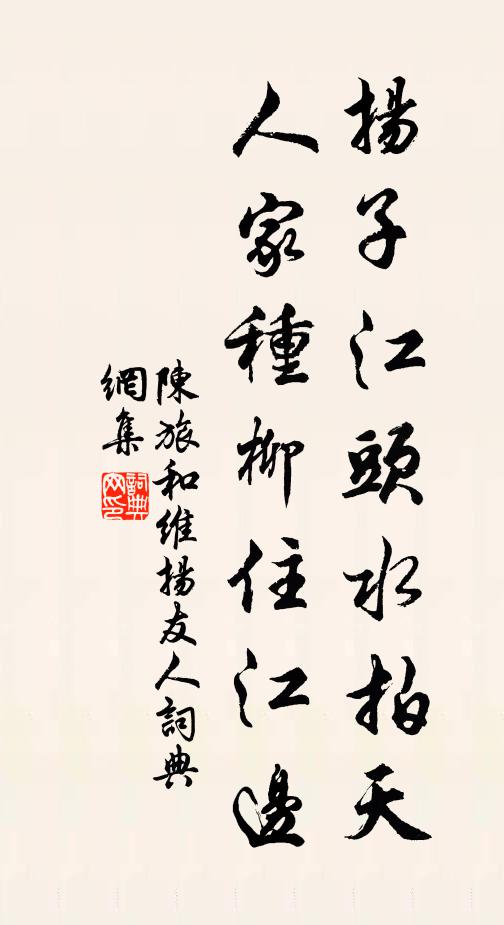 揚子江頭水拍天
人家種柳住江邊
陳旅和維揚友人詞典
網集
詞典
网印